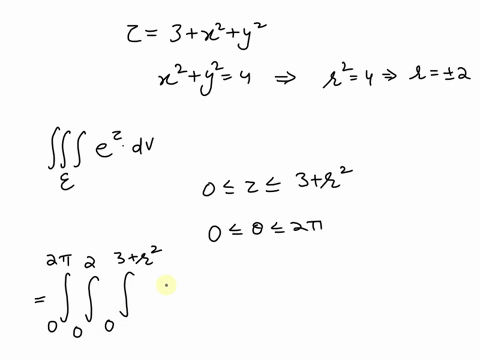 z = 3+x²+y²
x²+y²=4 ⇒ r²=4 ⇒ r=±2
∭_E e^z. dv
0 ≤ z ≤ 3+r²
0 ≤ θ ≤ 2π
= ∫_0^{2π} ∫_0^2 ∫_0^{3+r²}